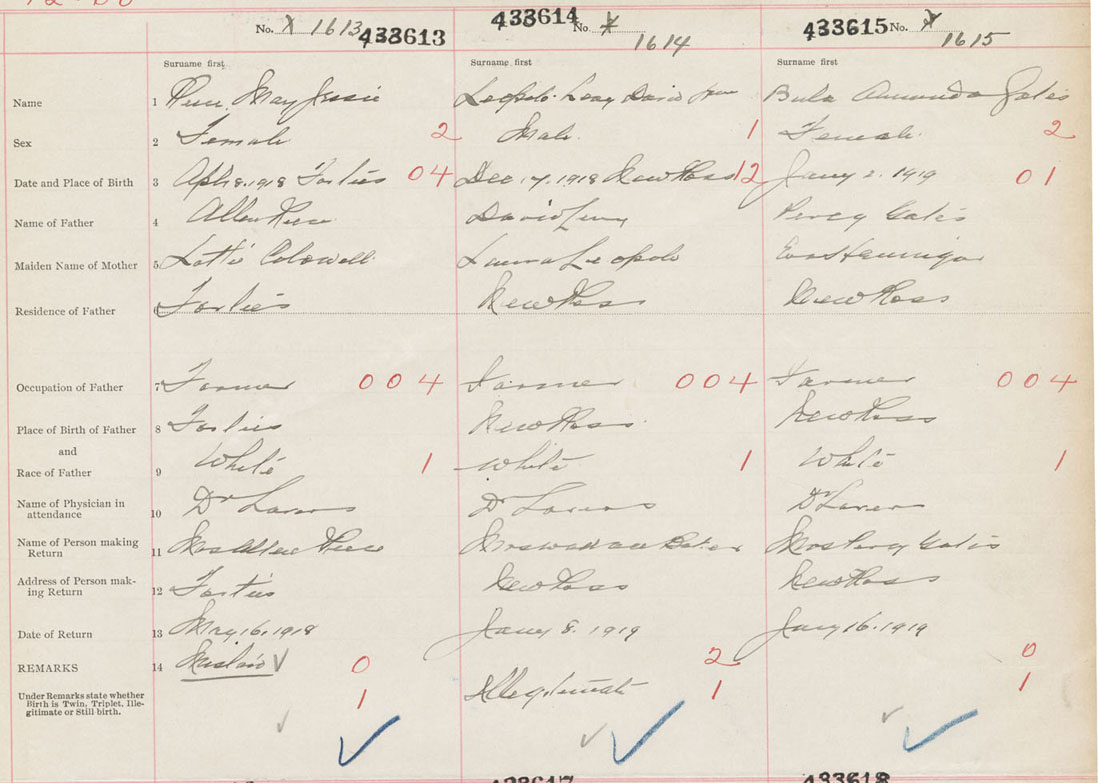 No. X 1613 433613
433614 No. X 1614
433615 No. X 1615
Surname first
Surname first
Surname first
Name 1 May Jessie
Leopold David
Bula Amanda Gates
Sex 2 Female 2
Male 1
Female 2
Date and Place of Birth 3 Apl 8. 1918 Forties 04
Dec 17. 1918 New Ross 12
Jany 2. 1919 01
Name of Father 4 Allen
David Levy
Percy Gates
Maiden Name of Mother 5 Lottie
Laura Leopold
Eva Hennigar
Residence of Father 6 Forties
New Ross
New Ross
Occupation of Father 7 Farmer 004
Farmer 004
Farmer 004
Place of Birth of Father 8 Forties
New Ross
New Ross
and
Race of Father 9 White 1
White 1
White 1
Name of Physician in
attendance 10 Dr
Dr
Dr
Name of Person making
Return 11 Mrs Allen
Mrs
Mrs Percy Gates
Address of Person mak-
ing Return 12 Forties
New Ross
New Ross
Date of Return 13 May 16. 1918
Jany 8. 1919
Jany 16. 1919
REMARKS 14 Mislaid 0
2
0
Under Remarks state whether
Birth is Twin, Triplet, Ille-
gitimate or Still birth.
1
Illegitimate 1
1
433618